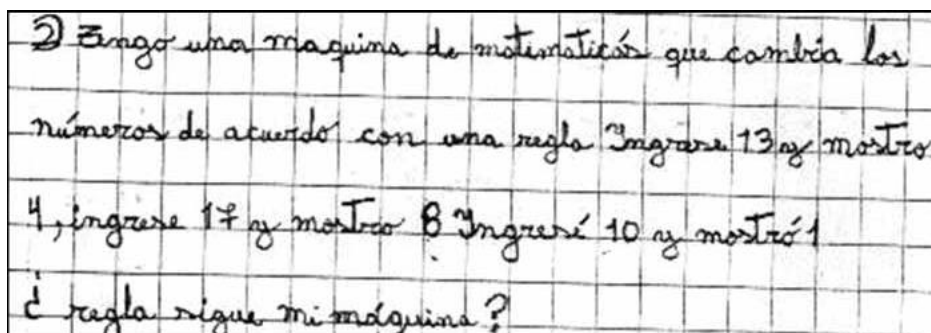 2) Tengo una maquina de matematicás que cambia los
números de acuerdo con una regla Ingrese 13 y mostro
4, ingrese 17 y mostro 8 Ingresé 10 y mostró 1
¿ regla sigue mi máquina?